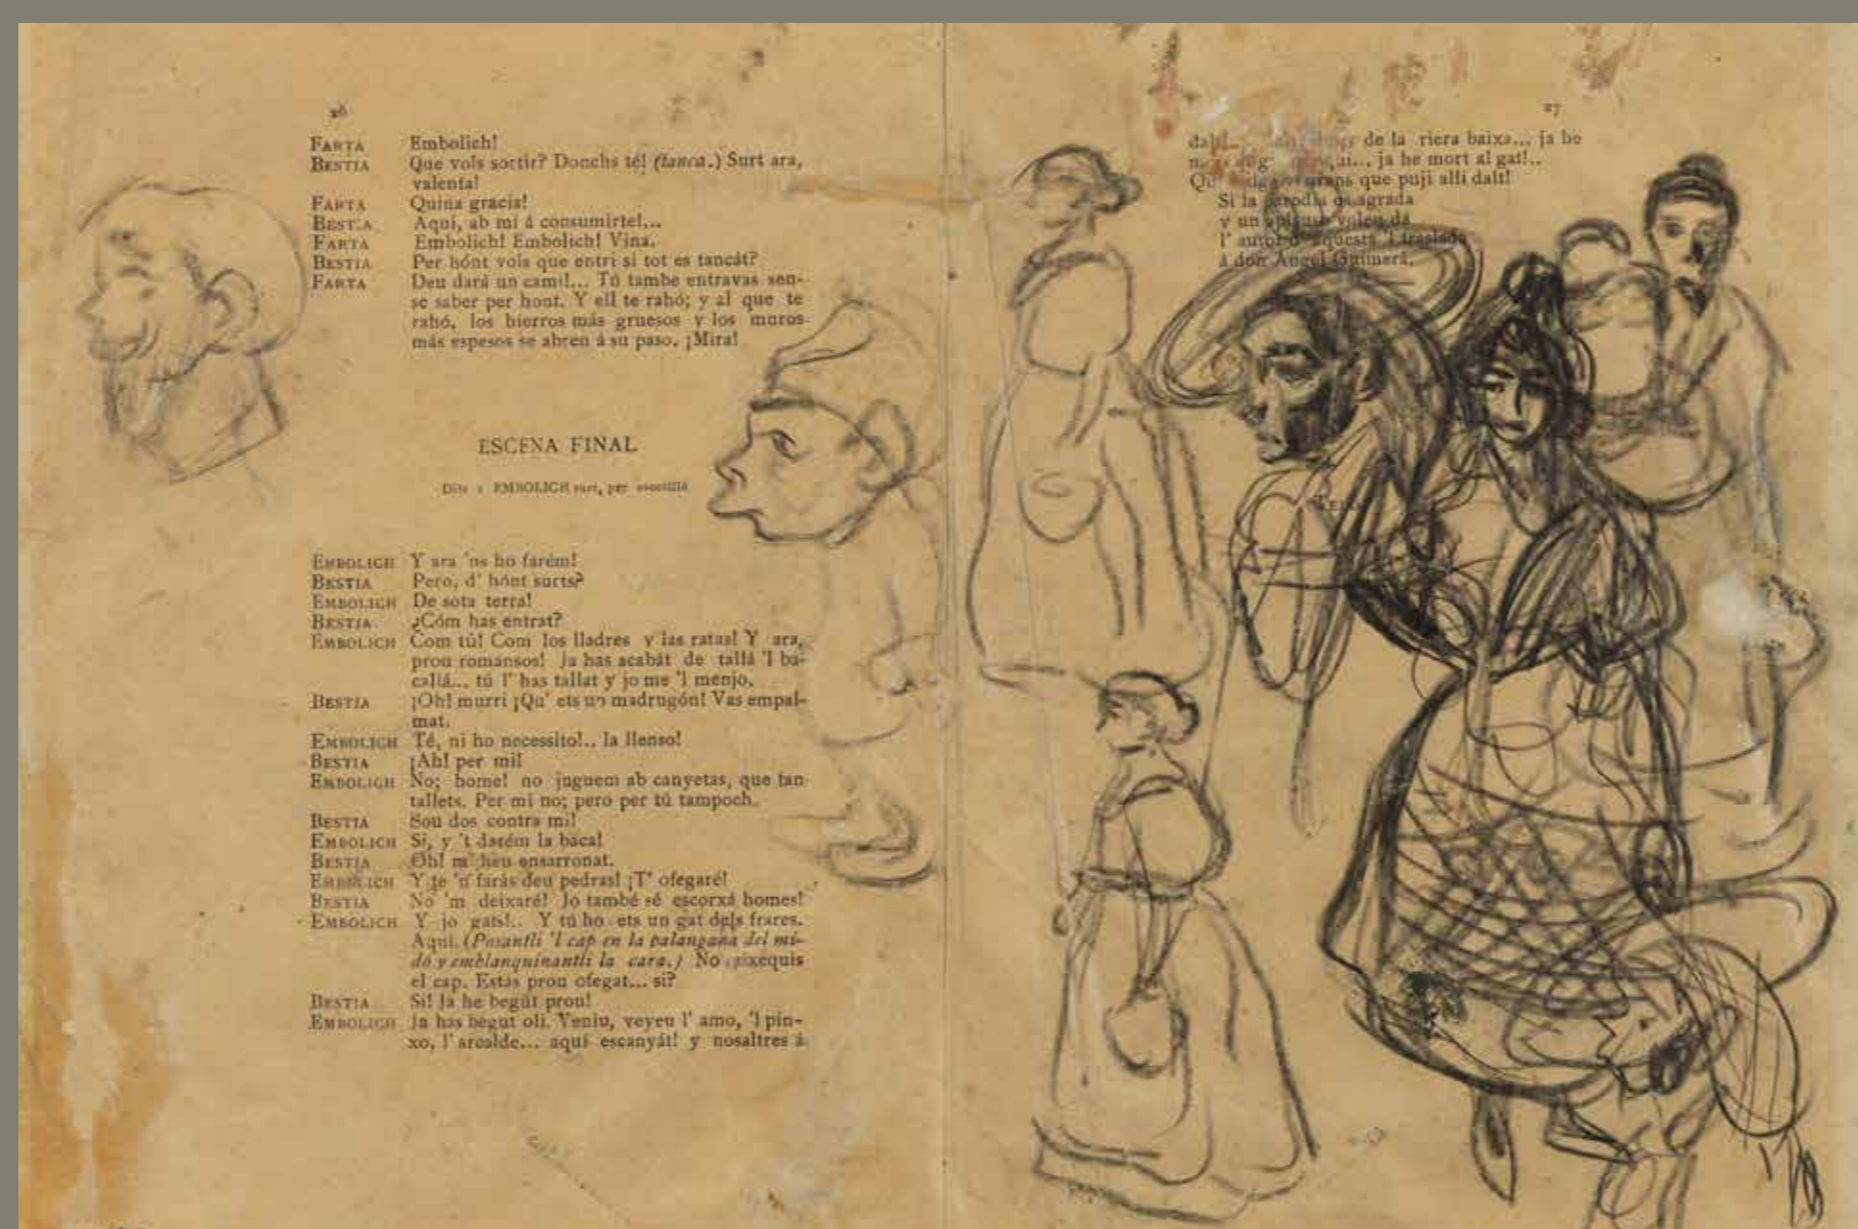 26
FARTA Embolich!
BESTIA Que vols sortir? Donchs té! (tanca.) Surt ara,
valenta!
FARTA Quina gracia!
BESTIA Aquí, ab mi á consumirte!...
FARTA Embolich! Embolich! Vina.
BESTIA Per hónt vols que entri si tot es tancát?
FARTA Deu dará un camí!... Tú tambe entravas sen-
se saber per hont. Y ell te rahó; y al que te
rahó, los hierros más gruesos y los muros
más espesos se abren á su paso. ¡Mira!
ESCENA FINAL
Dits y EMBOLICH surt, per escotilló
EMBOLICH Y ara 'ns ho farém!
BESTIA Pero, d' hónt surts?
EMBOLICH De sota terra!
BESTIA ¿Cóm has entrat?
EMBOLICH Com tú! Com los lladres y las ratas! Y ara,
prou romansos! Ja has acabát de tallá 'l ba-
callá... tú l' has tallat y jo me 'l menjo.
BESTIA ¡Oh! murri ¡Qu' ets un madrugón! Vas empal-
mat.
EMBOLICH Té, ni ho necessito!.. la llenso!
BESTIA ¡Ah! per mi!
EMBOLICH No; home! no juguem ab canyetas, que fan
tallets. Per mi no; pero per tú tampoch.
BESTIA Sou dos contra mi!
EMBOLICH Si, y 't darém la baca!
BESTIA Oh! m' heu ensarronat.
EMBOLICH Y te 'n farás deu pedras! ¡T' ofegaré!
BESTIA No 'm deixaré! Jo també sé escorxá homes!
EMBOLICH Y jo gats!.. Y tú ho ets un gat dels frares.
Aquí. (Posantli 'l cap en la palangana del mi-
dó y emblanquinantli la cara.) No aixequis
el cap. Estás prou ofegat... si?
BESTIA Si! Ja he begút prou!
EMBOLICH Ja has begut oli. Veniu, veyeu l' amo, 'l pin-
xo, l' arcalde... aquí escanyát! y nosaltres á
27
dalt! de la riera baixa... ja he
ja he mort al gat!..
que puji allí dalt!
Si la parodia os agrada
y un aplauso voleu dá
l' autor d' aquesta 'l traslada
á don Angel Guimerá.